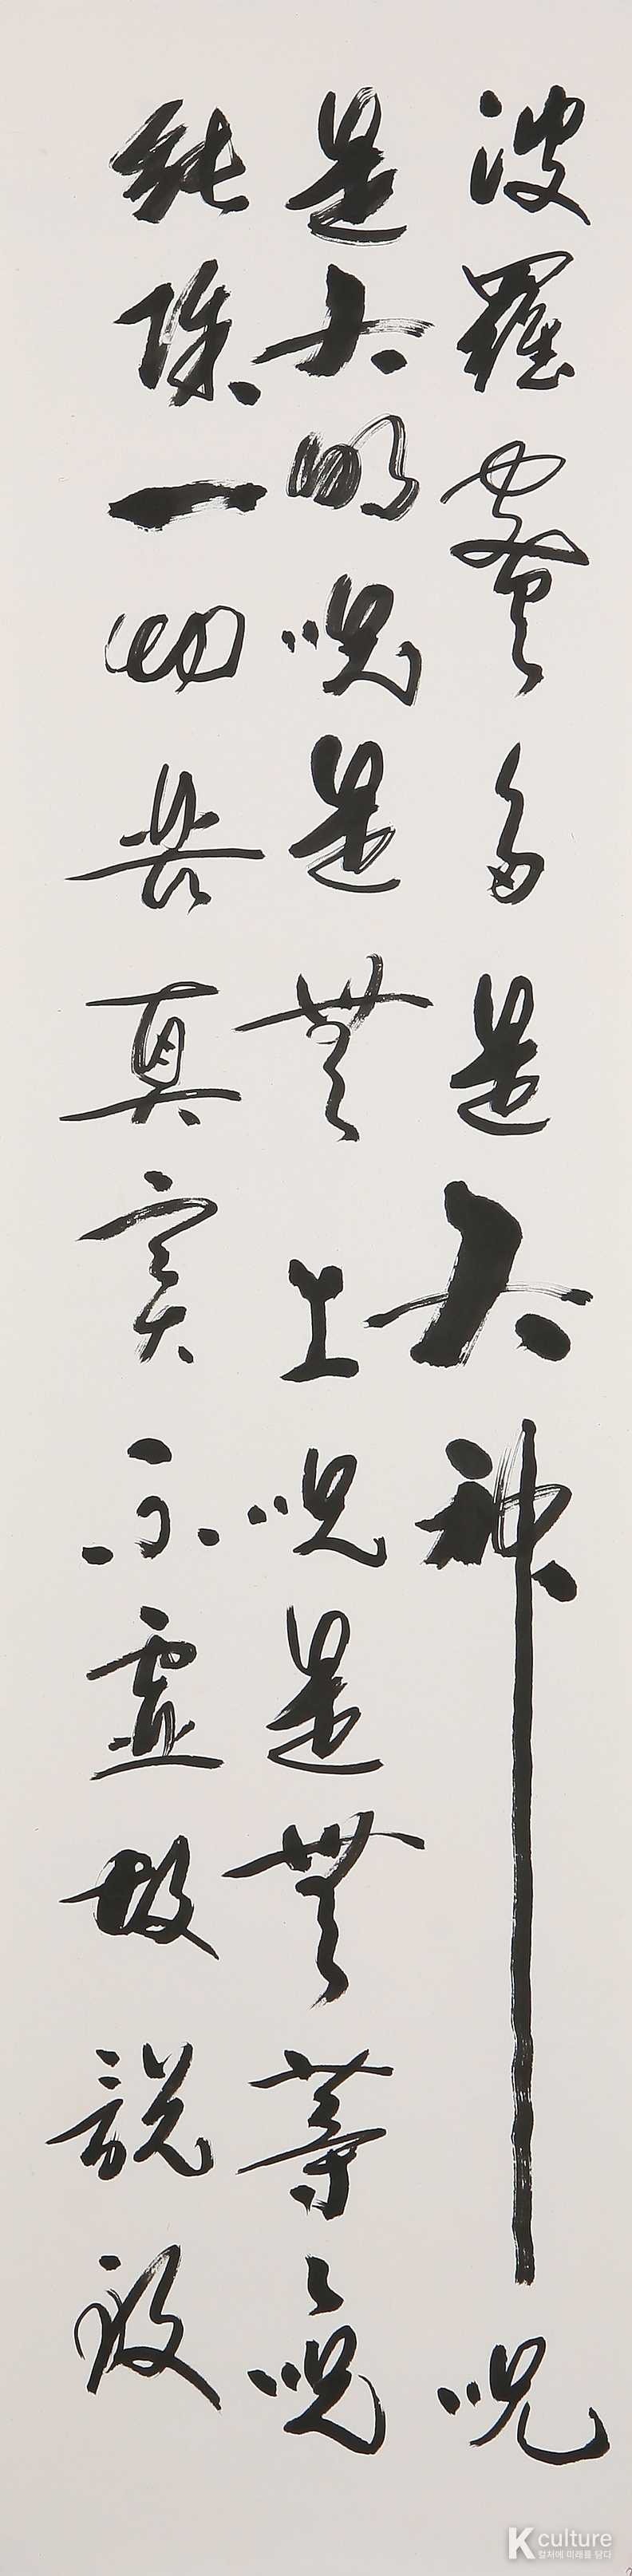 波羅蜜多是大神呪
是大明呪是無上呪是無等〻呪
能除一切苦真實不虛故說般
K culture
컬처에 미래를 담다